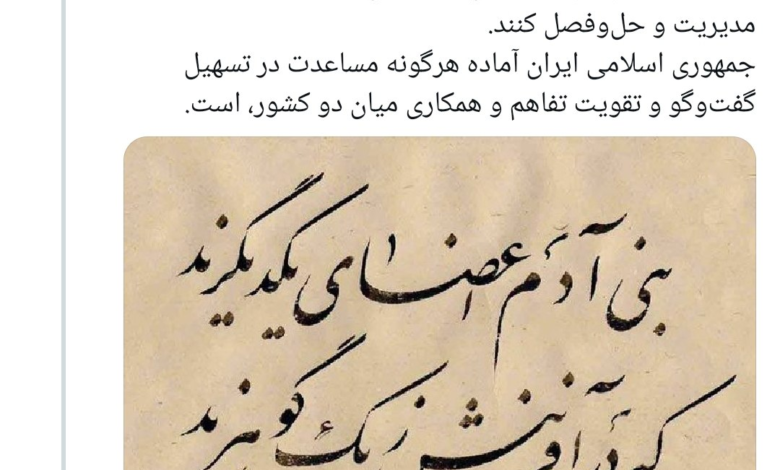 مدیریت و حل‌وفصل کنند.
جمهوری اسلامی ایران آماده هرگونه مساعدت در تسهیل
گفت‌وگو و تقویت تفاهم و همکاری میان دو کشور، است.
بنی آدم اعضای یکدیگرند
که در آفرینش ز یک گوهرند